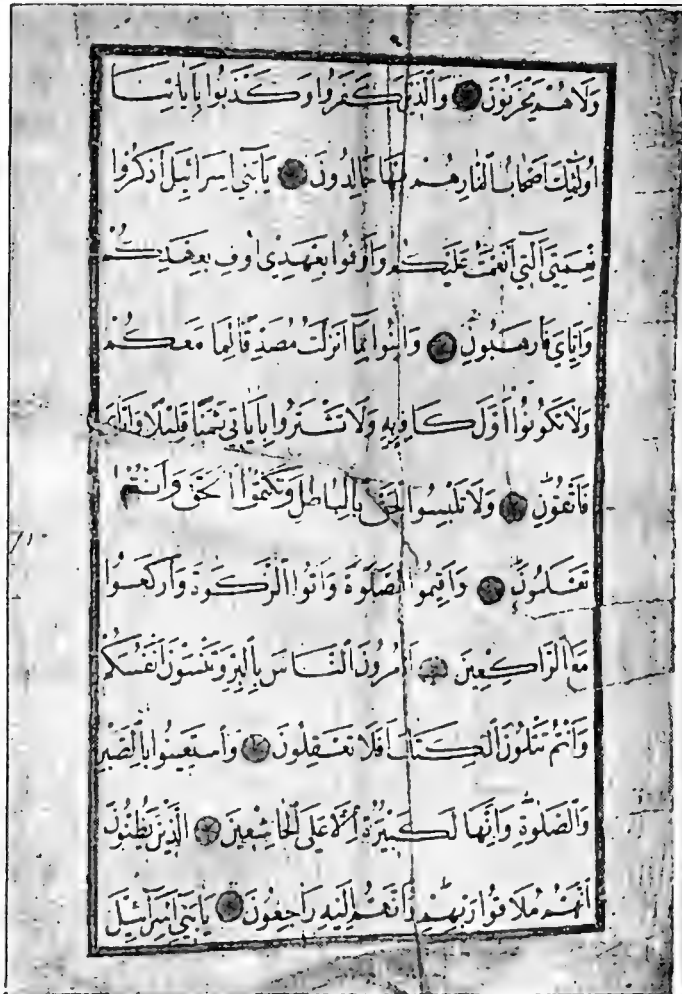 ٩
وَلَا هُمْ يَحْزَنُونَ وَالَّذِينَ كَفَرُوا وَكَذَّبُوا بِآيَاتِنَا
اُولٰئِكَ اَصْحَابُ النَّارِ هُمْ فِيهَا خَالِدُونَ يَا بَنِي اِسْرَائِيلَ اذْكُرُوا
نِعْمَتِيَ الَّتِي اَنْعَمْتُ عَلَيْكُمْ وَاَوْفُوا بِعَهْدِي اُوفِ بِعَهْدِكُمْ
وَاِيَّايَ فَارْهَبُونِ وَاٰمِنُوا بِمَا اَنْزَلْتُ مُصَدِّقًا لِمَا مَعَكُمْ
وَلَا تَكُونُوا اَوَّلَ كَافِرٍ بِهِ وَلَا تَشْتَرُوا بِاٰيَاتِي ثَمَنًا قَلِيلًا وَاِيَّايَ
فَاتَّقُونِ وَلَا تَلْبِسُوا الْحَقَّ بِالْبَاطِلِ وَتَكْتُمُوا الْحَقَّ وَاَنْتُمْ
تَعْلَمُونَ وَاَقِيمُوا الصَّلٰوةَ وَاٰتُوا الزَّكٰوةَ وَارْكَعُوا
مَعَ الرَّاكِعِينَ اَتَاْمُرُونَ النَّاسَ بِالْبِرِّ وَتَنْسَوْنَ اَنْفُسَكُمْ
وَاَنْتُمْ تَتْلُونَ الْكِتَابَ اَفَلَا تَعْقِلُونَ وَاسْتَعِينُوا بِالصَّبْرِ
وَالصَّلٰوةِ وَاِنَّهَا لَكَبِيرَةٌ اِلَّا عَلَى الْخَاشِعِينَ الَّذِينَ يَظُنُّونَ
اَنَّهُمْ مُلَاقُوا رَبِّهِمْ وَاَنَّهُمْ اِلَيْهِ رَاجِعُونَ يَا بَنِي اِسْرَائِيلَ